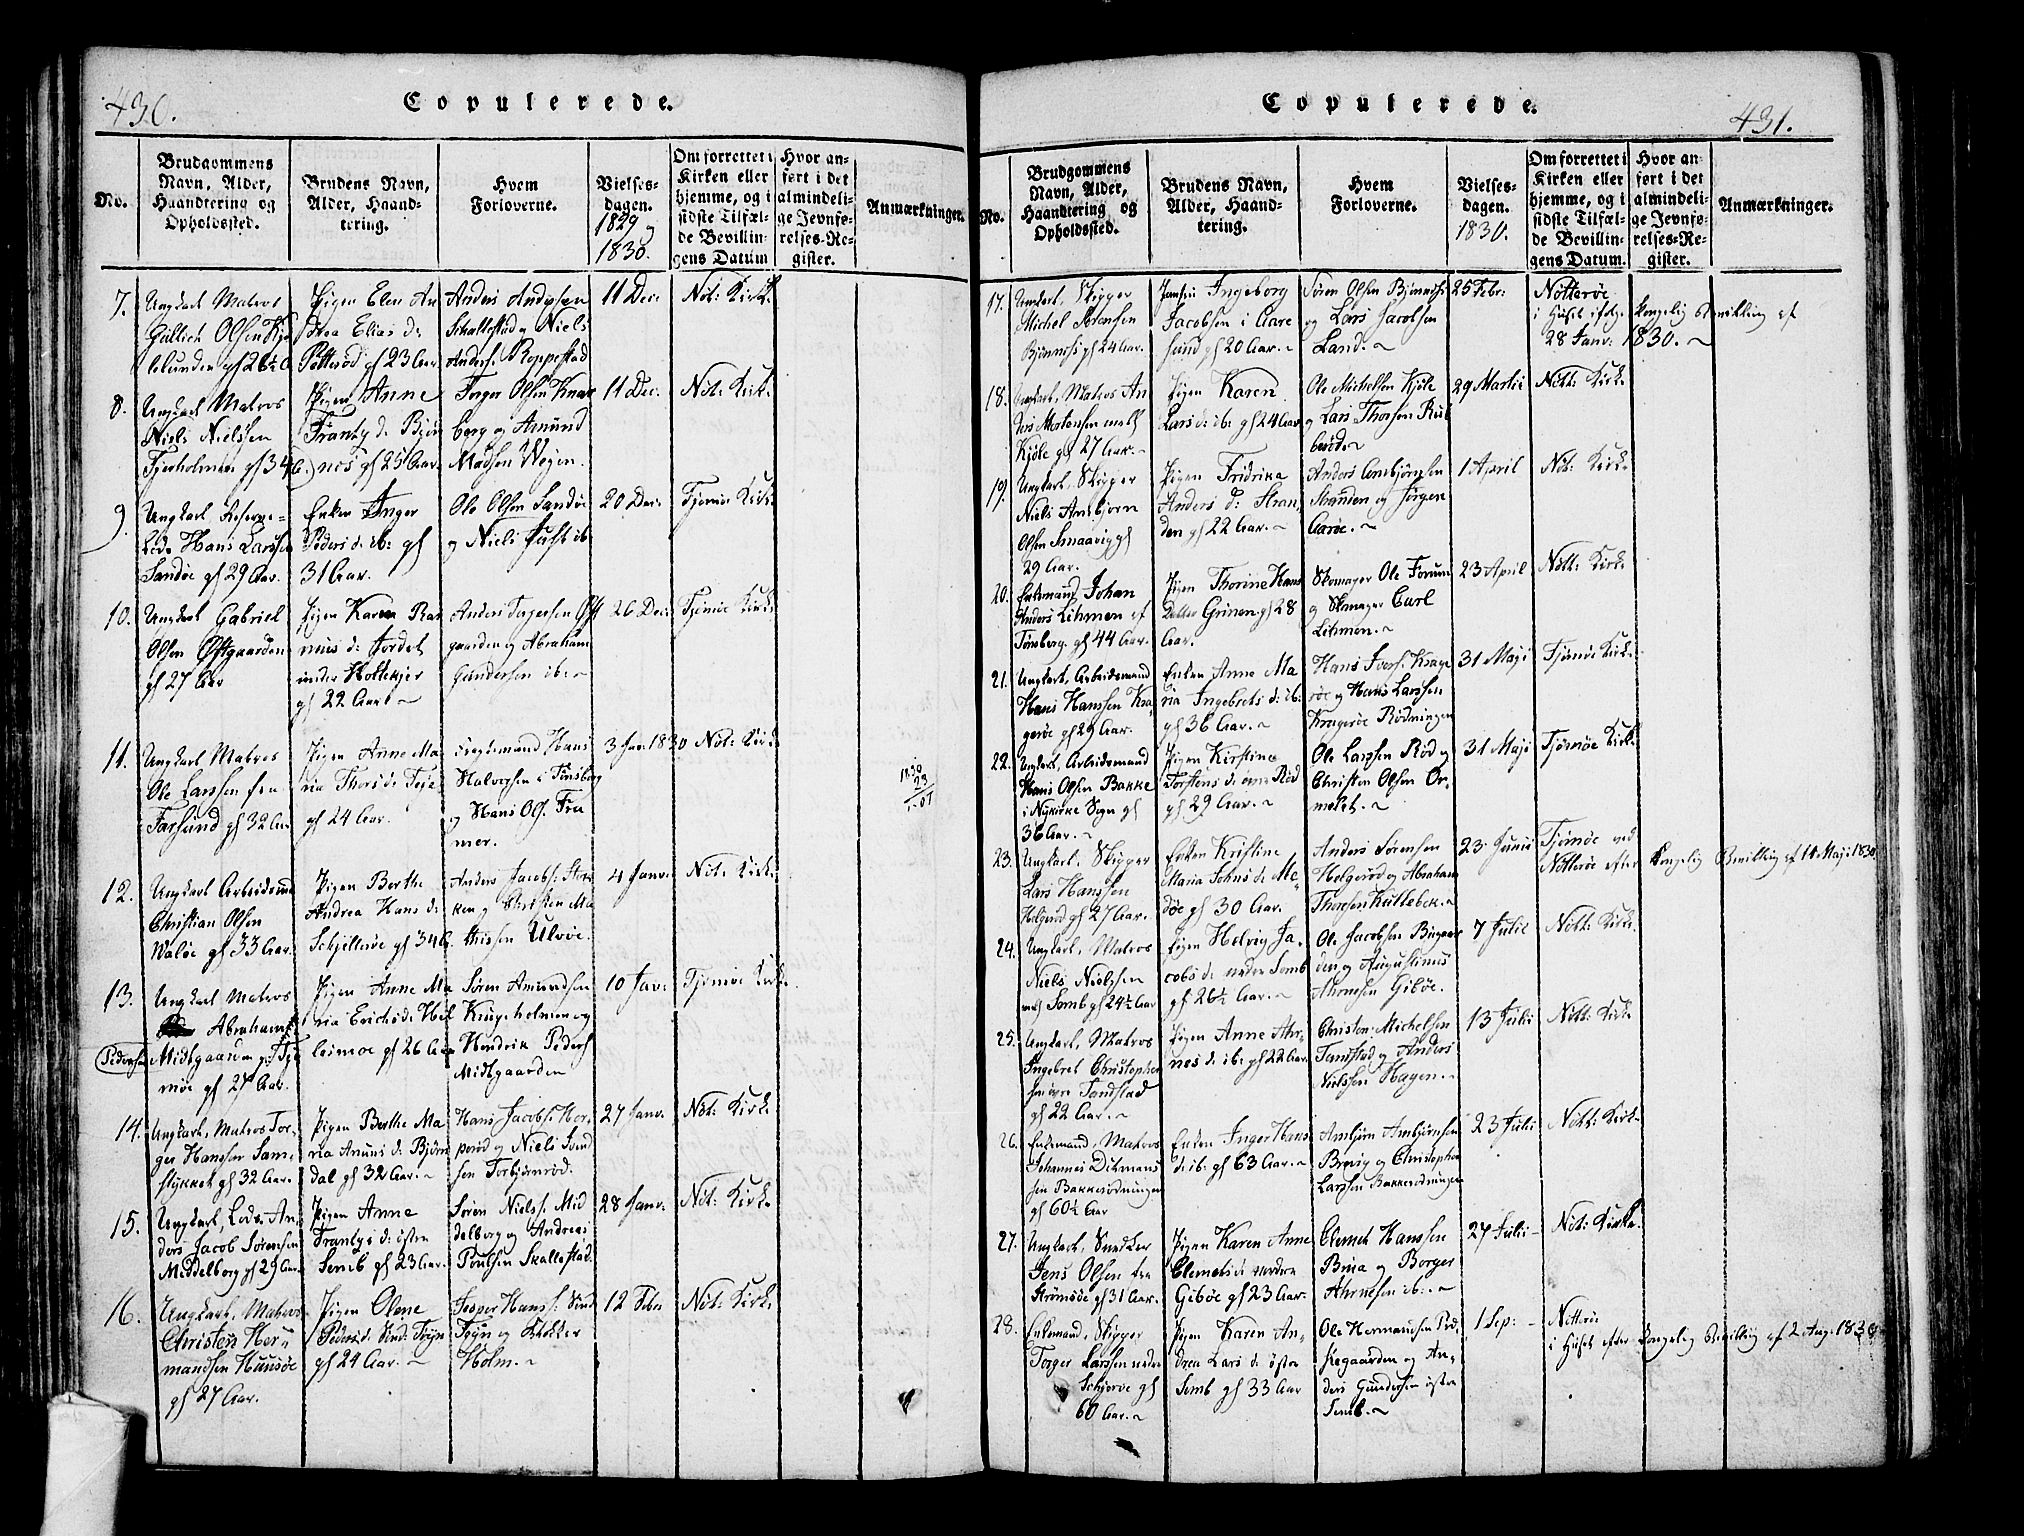 430.
Copulerede.
No.
Brudgommens
Navn, Alder,
Haandtering og
Opholdssted.
Brudens Navn,
Alder, Haand-
tering.
Hvem
Forloverne.
Vielses-
dagen.
1829 og
1830.
Om forrettet i
Kirken eller
hjemme, og i
sidste Tilfæl-
de Bevillin-
gens Datum
Hvor an-
ført i det
almindeli-
ge Jevnfø-
relses-Re-
gister.
Anmærkninger.
7.
Ungkarl Matros
Gullich Olsen
gl 26½ A
Pigen Elen An
drea Elias d:
Pötteröd gl 23 Aar
Anders Andersen
Schallestad og Niels
Anders: Roppestad
11 Dec:
Nöt: Kirk:
8.
Ungkarl Matros
Niels Nielssen
gl 34
Pigen Anne
Frantz d: Bjön
nes gl 25 Aar.
Torger Olsen Knar
berg og Amund
Madsen
11 Dec:
Nöt: Kirk:
9.
Ungkarl Reserve-
Lods Hans Larssen
Sandöe gl 29 Aar.
Enken Inger
Peders d: ib: gl
31 Aar.
Ole Olsen Sandöe
og Niels ib
20 Dec:
Tjömöe Kirk:
10.
Ungkarl Gabriel
Olsen Östgaarden
gl 27 Aar
Pigen Karen Ras
mus d: Jordet
under Holtekjer
gl 22 Aar ~
Anders Torgersen Öst
gaarden og Abraham
Gundersen ib: ~
26 Dec:
Tjömöe Kirk:
11.
Ungkarl Matros
Ole Larssen fra
Farsund gl 32 Aar
Pigen Anne Ma
ria Thors d: Teje
gl 24 Aar.
Hans
Halvorsen i Tönsberg
og Hans Ols:
3 Jan: 1830
Nöt: Kirk:
1830
23
12.
Ungkarl Arbeidsmd
Christian Olsen
Walöe gl 33 Aar
Pigen Berthe
Andrea Hans d:
gl 34 A.
Anders Jacobs:
og Christen Ma
thissen Ulvöe.
4 Janv:
Nöt: Kirk:
13.
Ungkarl Matros
Abraham
Pedersen
Midtgaarden paa Tjö
möe gl 27 Aar.
Pigen Anne Ma
ria Erichs d:
gl 26 Aar
Sören Amundsen
Krugeholmen og
Hendrik Peders
Midtgaarden
10 Jav:
Tjömöe Kirk:
14.
Ungkarl, Matros Tor-
ger Hanssen Sam-
stykket gl 32 Aar.
Pigen Berthe Ma
ria Anuns d: Björn
dal gl 32 Aar. ~
Hans Jacobs: Her-
peröd og Niels
sen Torbjörnröd.
27 Janv.
Nöt: Kirk:
15.
Ungkarl, Lods: An-
ders Jacob Sörensen
Middelborg gl 29 Aar.
Pigen Anne
Frantz's d: östre
Semb gl 23 Aar.
Sören Niels: Mid
delborg og Andreas
Poulsen Skallestad.
28 Janv.
Nöt: Kirk:
16.
Ungkarl, Matros
Christen Her-
mandsen Huusöe
gl 27 Aar.
Pigen Olene
Peders d:
gl 24 Aar. ~
Jesper Hans:
og
Holm. ~
12 Febr
Nöt: Kirk:
Copulerede.
431.
No.
Brudgommens
Navn, Alder,
Haandtering og
Opholdssted.
Brudens Navn,
Alder, Haand-
tering.
Hvem
Forloverne.
Vielses-
dagen.
1830.
Om forrettet i
Kirken eller
hjemme, og i
sidste Tilfæl-
de Bevillin-
gens Datum.
Hvor an-
ført i det
almindeli-
ge Jevnfø-
relses-Re-
gister.
Anmærkninger.
17.
Ungkarl, Skipper
Michel Sörensen
Bjönnes gl 24 Aar.
Jomfru Ingeborg
Jacobsen i Aare
sund gl 20 Aar. ~
Sören Olsen Bjönnes
og Lars Jacobsen
Land. ~
25 Febr:
Nötteröe
i Huset ifölge kongelig Bevilling af
28 Janr: 1830. ~
18.
Ungkarl, Matros An
ders Mortensen
Kjöle gl 27 Aar. ~
Pigen Karen
Lars d: ib: gl 24 Aar
Ole Michelsen Kjöle
og Lars Thorsen Rub
beröd ~
29 Martii
Nött: Kirk:
19.
Ungkarl, Skipper
Niels Ambjörn
Olsen Smaavig gl
29 Aar.
Pigen Fridrika
Anders d: Stran
den gl 22 Aar. ~
Anders Ambjörnsen
Stranden og Jörgen
Aaröe. ~
1 April
Nöt: Kirk:
20.
Enkemand Johan
Anders Lihmen af
Tönsberg gl 44 Aar.
Pigen Thorine Hans
Datter Grinen gl 28
Aar.
Skomager Ole Forum
og Skomager Carl
Lihmen. ~
23 April
Nött: Kirk:
21.
Ungkarl, Arbeidsmand
Hans Hanssen Kra
geröe gl 29 Aar.
Enken Anne Ma
ria Ingebrets d: ib:
gl 36 Aar. ~
Hans Ivers: Krage
röe og Hans Larssen
Krageröe Rödningen
31 Maji
Tjömöe Kirk:
22.
Ungkarl, Arbeidsmand
Hans Olsen Bakke
i Nykirke Sogn gl
36 Aar. ~
Pigen Kirstine
Torstens d: Röd
gl 29 Aar. ~
Ole Larssen Röd og
Christen Olsen Or-
melet. ~
31 Maji
Tjömöe Kirk:
23.
Ungkarl, Skipper
Lars Hanssen
Holgeröd gl 27 Aar.
Enken Kristine
Maria Johns d: Me-
döe gl 30 Aar.
Anders Sörensen
Helgeröd og Abraham
Thorsen Küllebek. ~
23 Junii
Tjömöe ved
Nötteröe efter kongelig Bevilling af 14 Maji 1830.
24.
Ungkarl, Matros
Niels Nielssen
Semb gl 24½ Aar
Pigen Helvig Ja-
cobs d: nedre Semb
gl 26½ Aar. ~
Ole Jacobsen Bugaar
den og Augustinus
Ahrnesen Giböe.
7 Julii
Nött: Kirk:
25.
Ungkarl, Matros
Ingebret Christopher
sen övre Tandstad
gl 22 Aar. ~
Pigen Anne Ahr-
nes d: ib: gl 22 Aar
Christen Michelsen
Tandstad og Anders
Nielssen Hagen. ~
13 Julii
Nött: Kirk:
26.
Enkemand, Matros
Johannes Ditmans
sen Bakkerödningen
gl 60½ Aar
Enken Inger Hans
d: ib: gl 63 Aar. ~
Ambjörn Ambjörnsen
og Christopher
Larssen Bakkerödningen
23 Julii
Nött: Kirk:
27.
Ungkarl, Snedker
Jens Olsen fra
Strömsöe gl 31 Aar.
Pigen Karen Anne
Clemets d: nordre
Giböe gl 23 Aar.
Clemet Hanssen
Buua og Borger
Ahrnesen ib: ~
27 Julii -
Nöt: Kirke.
28.
Enkemand, Skipper
Torger Larssen nedre
Schjerve gl
60 Aar. ~
Pigen Karen An-
drea Lars d: östre
Semb gl 33 Aar
Ole Hermandsen
og An-
ders Gundersen östre
Semb. ~
1 Sep: -
Nötteröe
i Huset efter kongelig Bevilling af 2 Aug: 1830